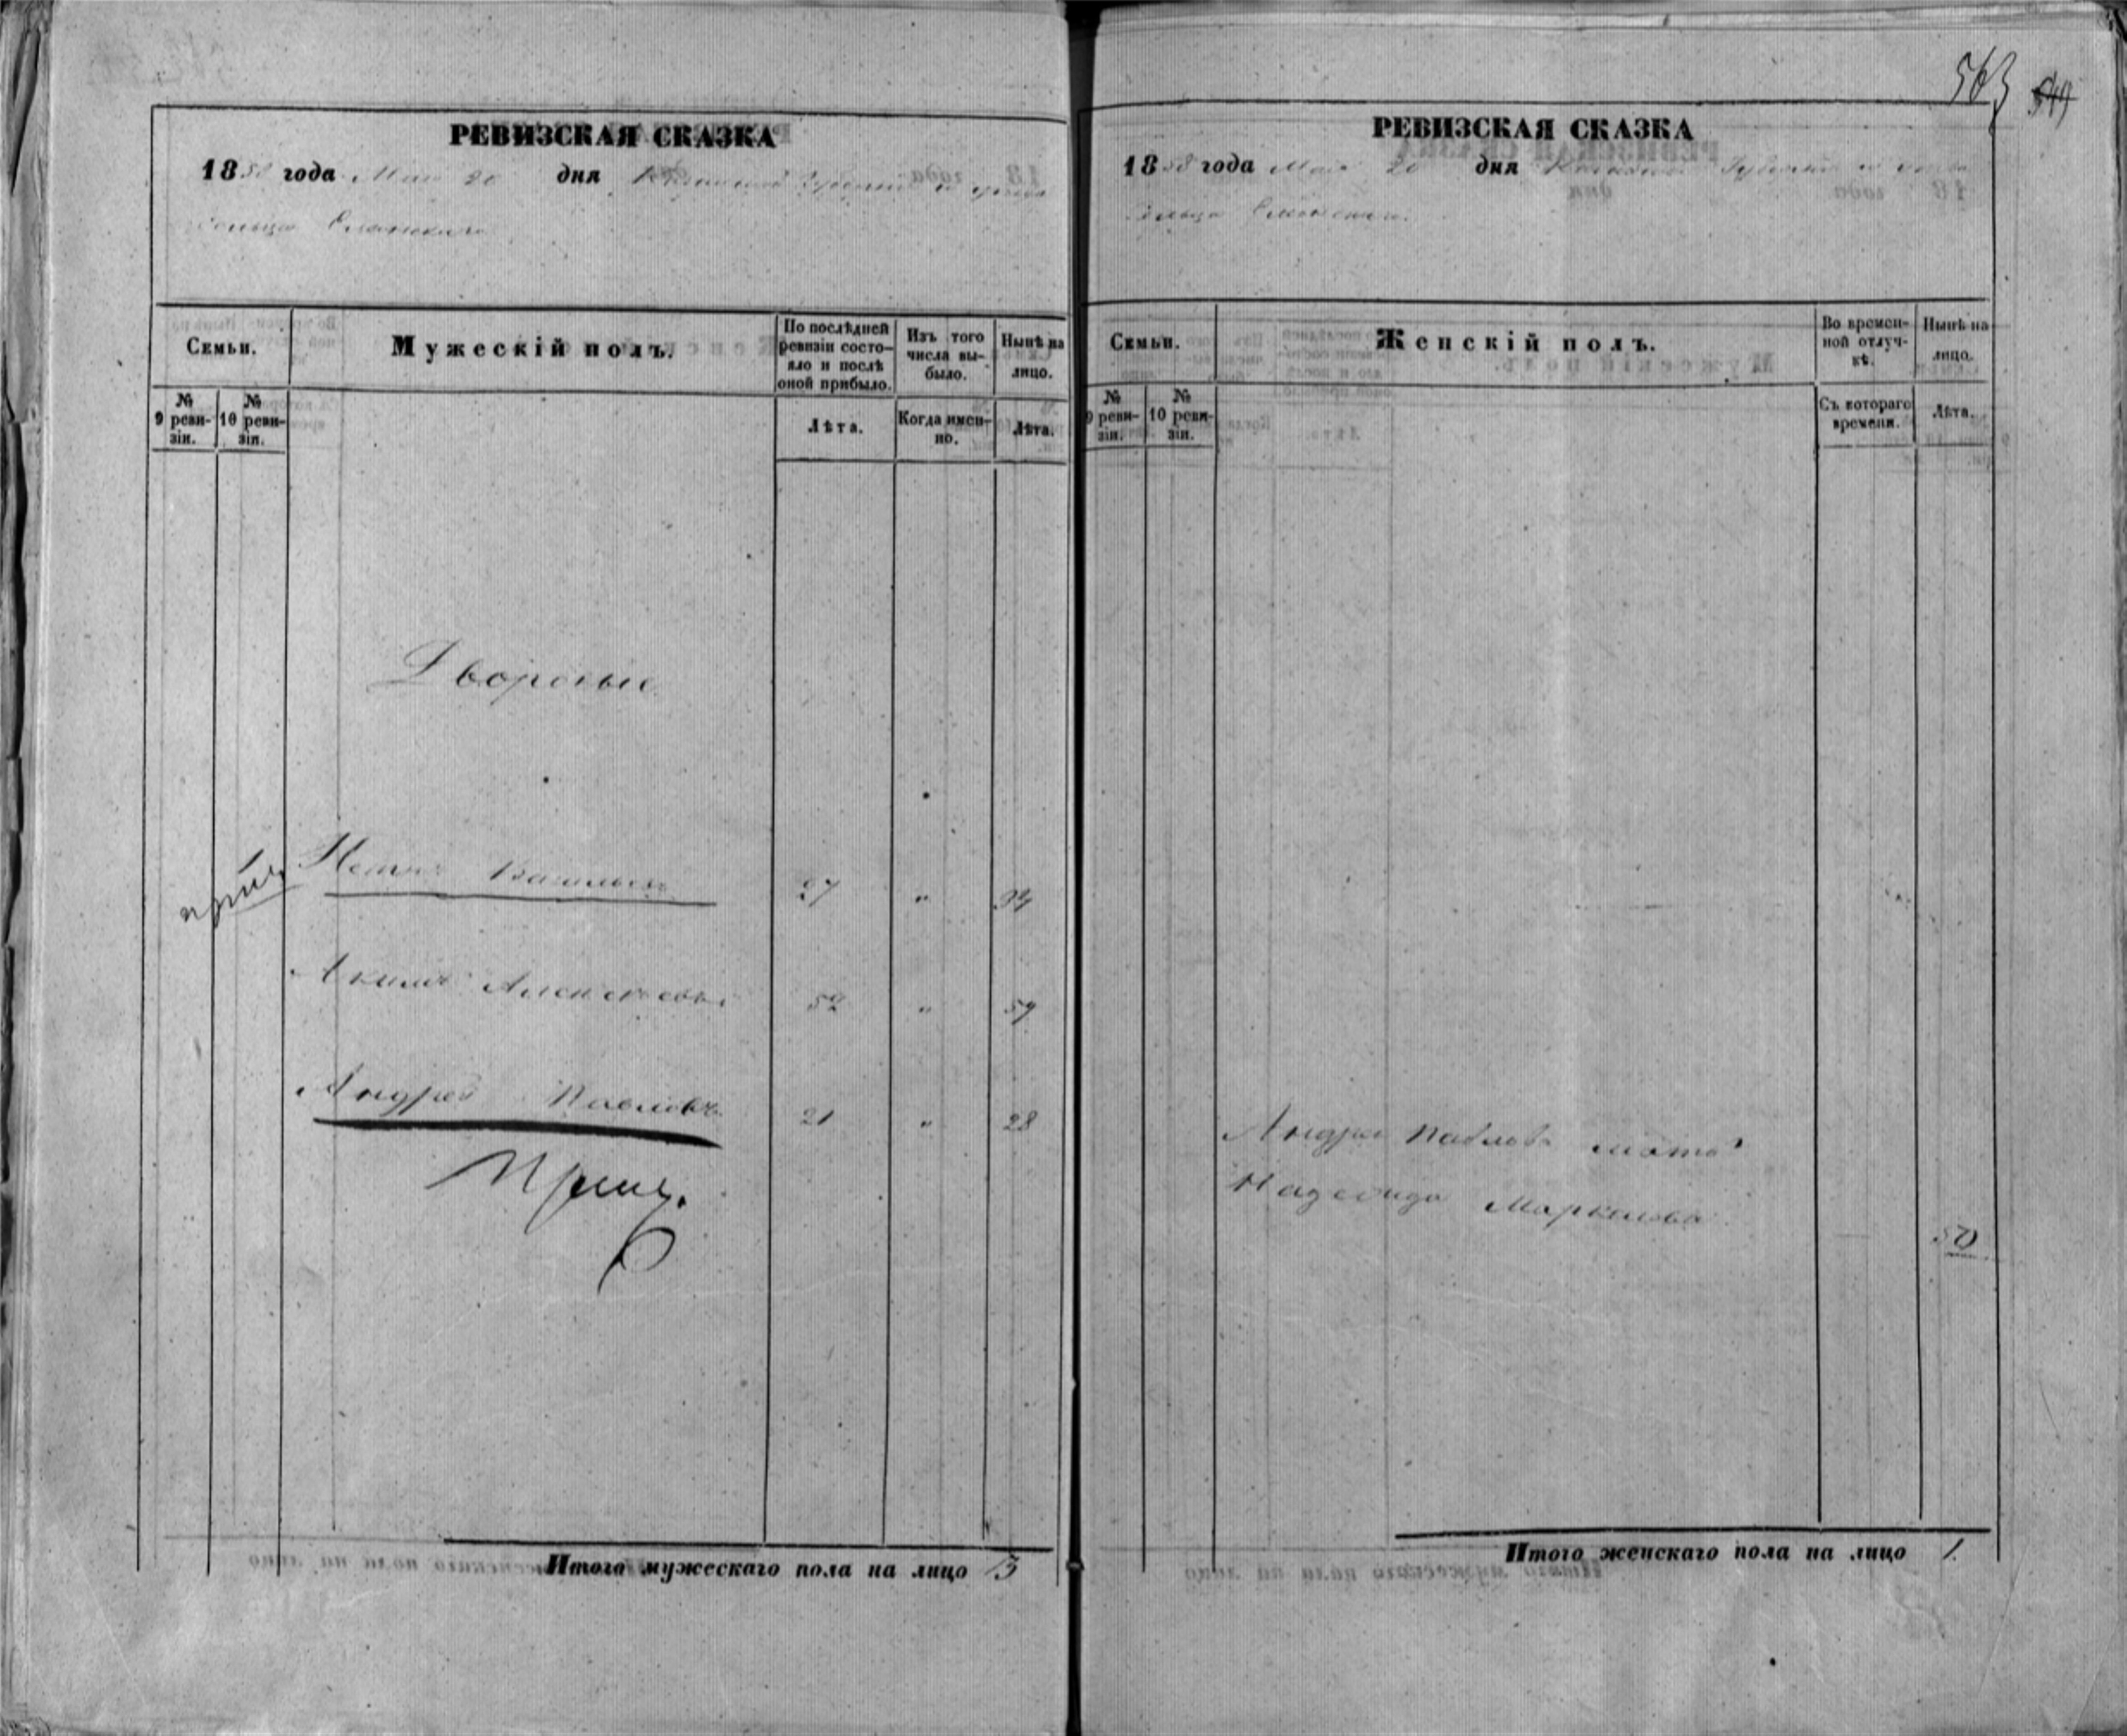 563 549
РЕВИЗСКАЯ СКАЗКА
1858 года Мая 20 дня Губернии и уезда
сельца
Семьи.
Мужескій полъ.
По послѣдней ревизіи состо-
яло и послѣ
оной прибыло.
Изъ того
числа вы-
было.
Нынѣ на
лицо.
№
9 реви-
зіи.
№
10 реви-
зіи.
Лѣта.
Когда имен-
но.
Лѣта.
Дворовые
Васильевъ 27 " 34
Акимъ Алексѣевъ 52 " 59
Андрей Павловъ 21 " 28
Итого мужескаго пола на лицо 3
РЕВИЗСКАЯ СКАЗКА
1858 года Мая 20 дня Губернии и уезда
сельца
Семьи.
Женскій полъ.
Во времен-
ной отлуч-
кѣ.
Нынѣ на
лицо.
№
9 реви-
зіи.
№
10 реви-
зіи.
Съ котораго
времени.
Лѣта.
Андрея Павлова мать
Надежда Маркелова 50
Итого женскаго пола на лицо 1.